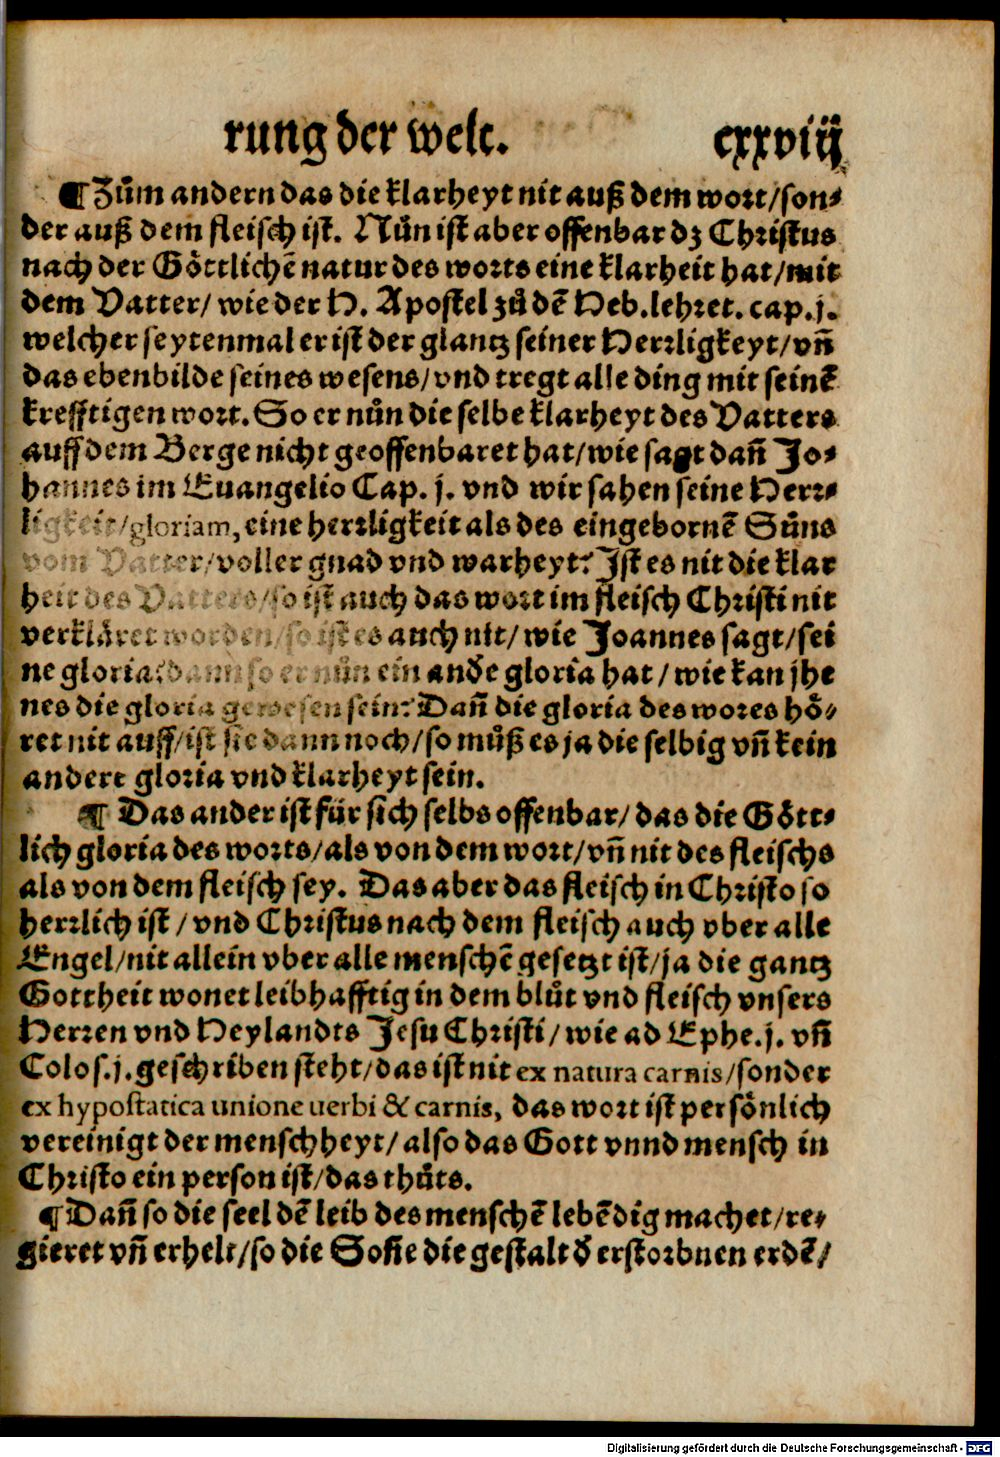 rung der welt. cxxviij
¶ Zům andern das die klarheyt nit auß dem wort/son⸗
der auß dem fleisch ist. Nůn ist aber offenbar dz Christus
nach der Göttlichē natur des worts eine klarheit hat/mit
dem Vatter/ wie der H. Apostel zů dē Heb.lehret. cap.j.
welcher seytenmal er ist der glantz seiner Herrligkeyt/vñ
das ebenbilde seines wesens/vnd tregt alle ding mit seinē
krefftigen wort. So er nůn die selbe klarheyt des Vatters
auff dem Berge nicht geoffenbaret hat/wie sagt dañ Jo⸗
hannes im Euangelio Cap. j. vnd wir sahen seine Herr⸗
ligkeit/gloriam, eine herrligkeit als des eingebornē Sůns
vom Vatter/voller gnad vnd warheyt? Ist es nit die klar
heit des Vatters/so ist auch das wort im fleisch Christi nit
verkläret worden/so ist es auch nit/ wie Joannes sagt/sei
ne gloria: dann so er nůn ein andē gloria hat/ wie kan jhe
nes die gloria gewesen sein? Dañ die gloria des wores hö⸗
ret nit auff/ist sie dann noch/so můß es ja die selbig vñ kein
andere gloria vnd klarheyt sein.
¶ Das ander ist für sich selbs offenbar/das die Gött⸗
lich gloria des worts/als von dem wort/vñ nit des fleischs
als von dem fleisch sey. Das aber das fleisch in Christo so
herrlich ist/ vnd Christus nach dem fleisch auch vber alle
Engel/nit allein vber alle menschē gesetzt ist/ja die gantz
Gottheit wonet leibhafftig in dem blůt vnd fleisch vnsers
Herren vnd Heylandts Jesu Christi/ wie ad Ephe.j. vñ
Colos.j.geschriben steht/das ist nit ex natura carnis/sonder
ex hypostatica unione uerbi & carnis, das wort ist persönlich
vereinigt der menschheyt/ also das Gott vnnd mensch in
Christo ein person ist/das thůts.
¶ Dañ so die seel dē leib des menschē lebēdig machet/re⸗
gieret vñ erhelt/so die Soñe die gestalt đ erstorbnen erdē/
Digitalisierung gefördert durch die Deutsche Forschungsgemeinschaft - DFG